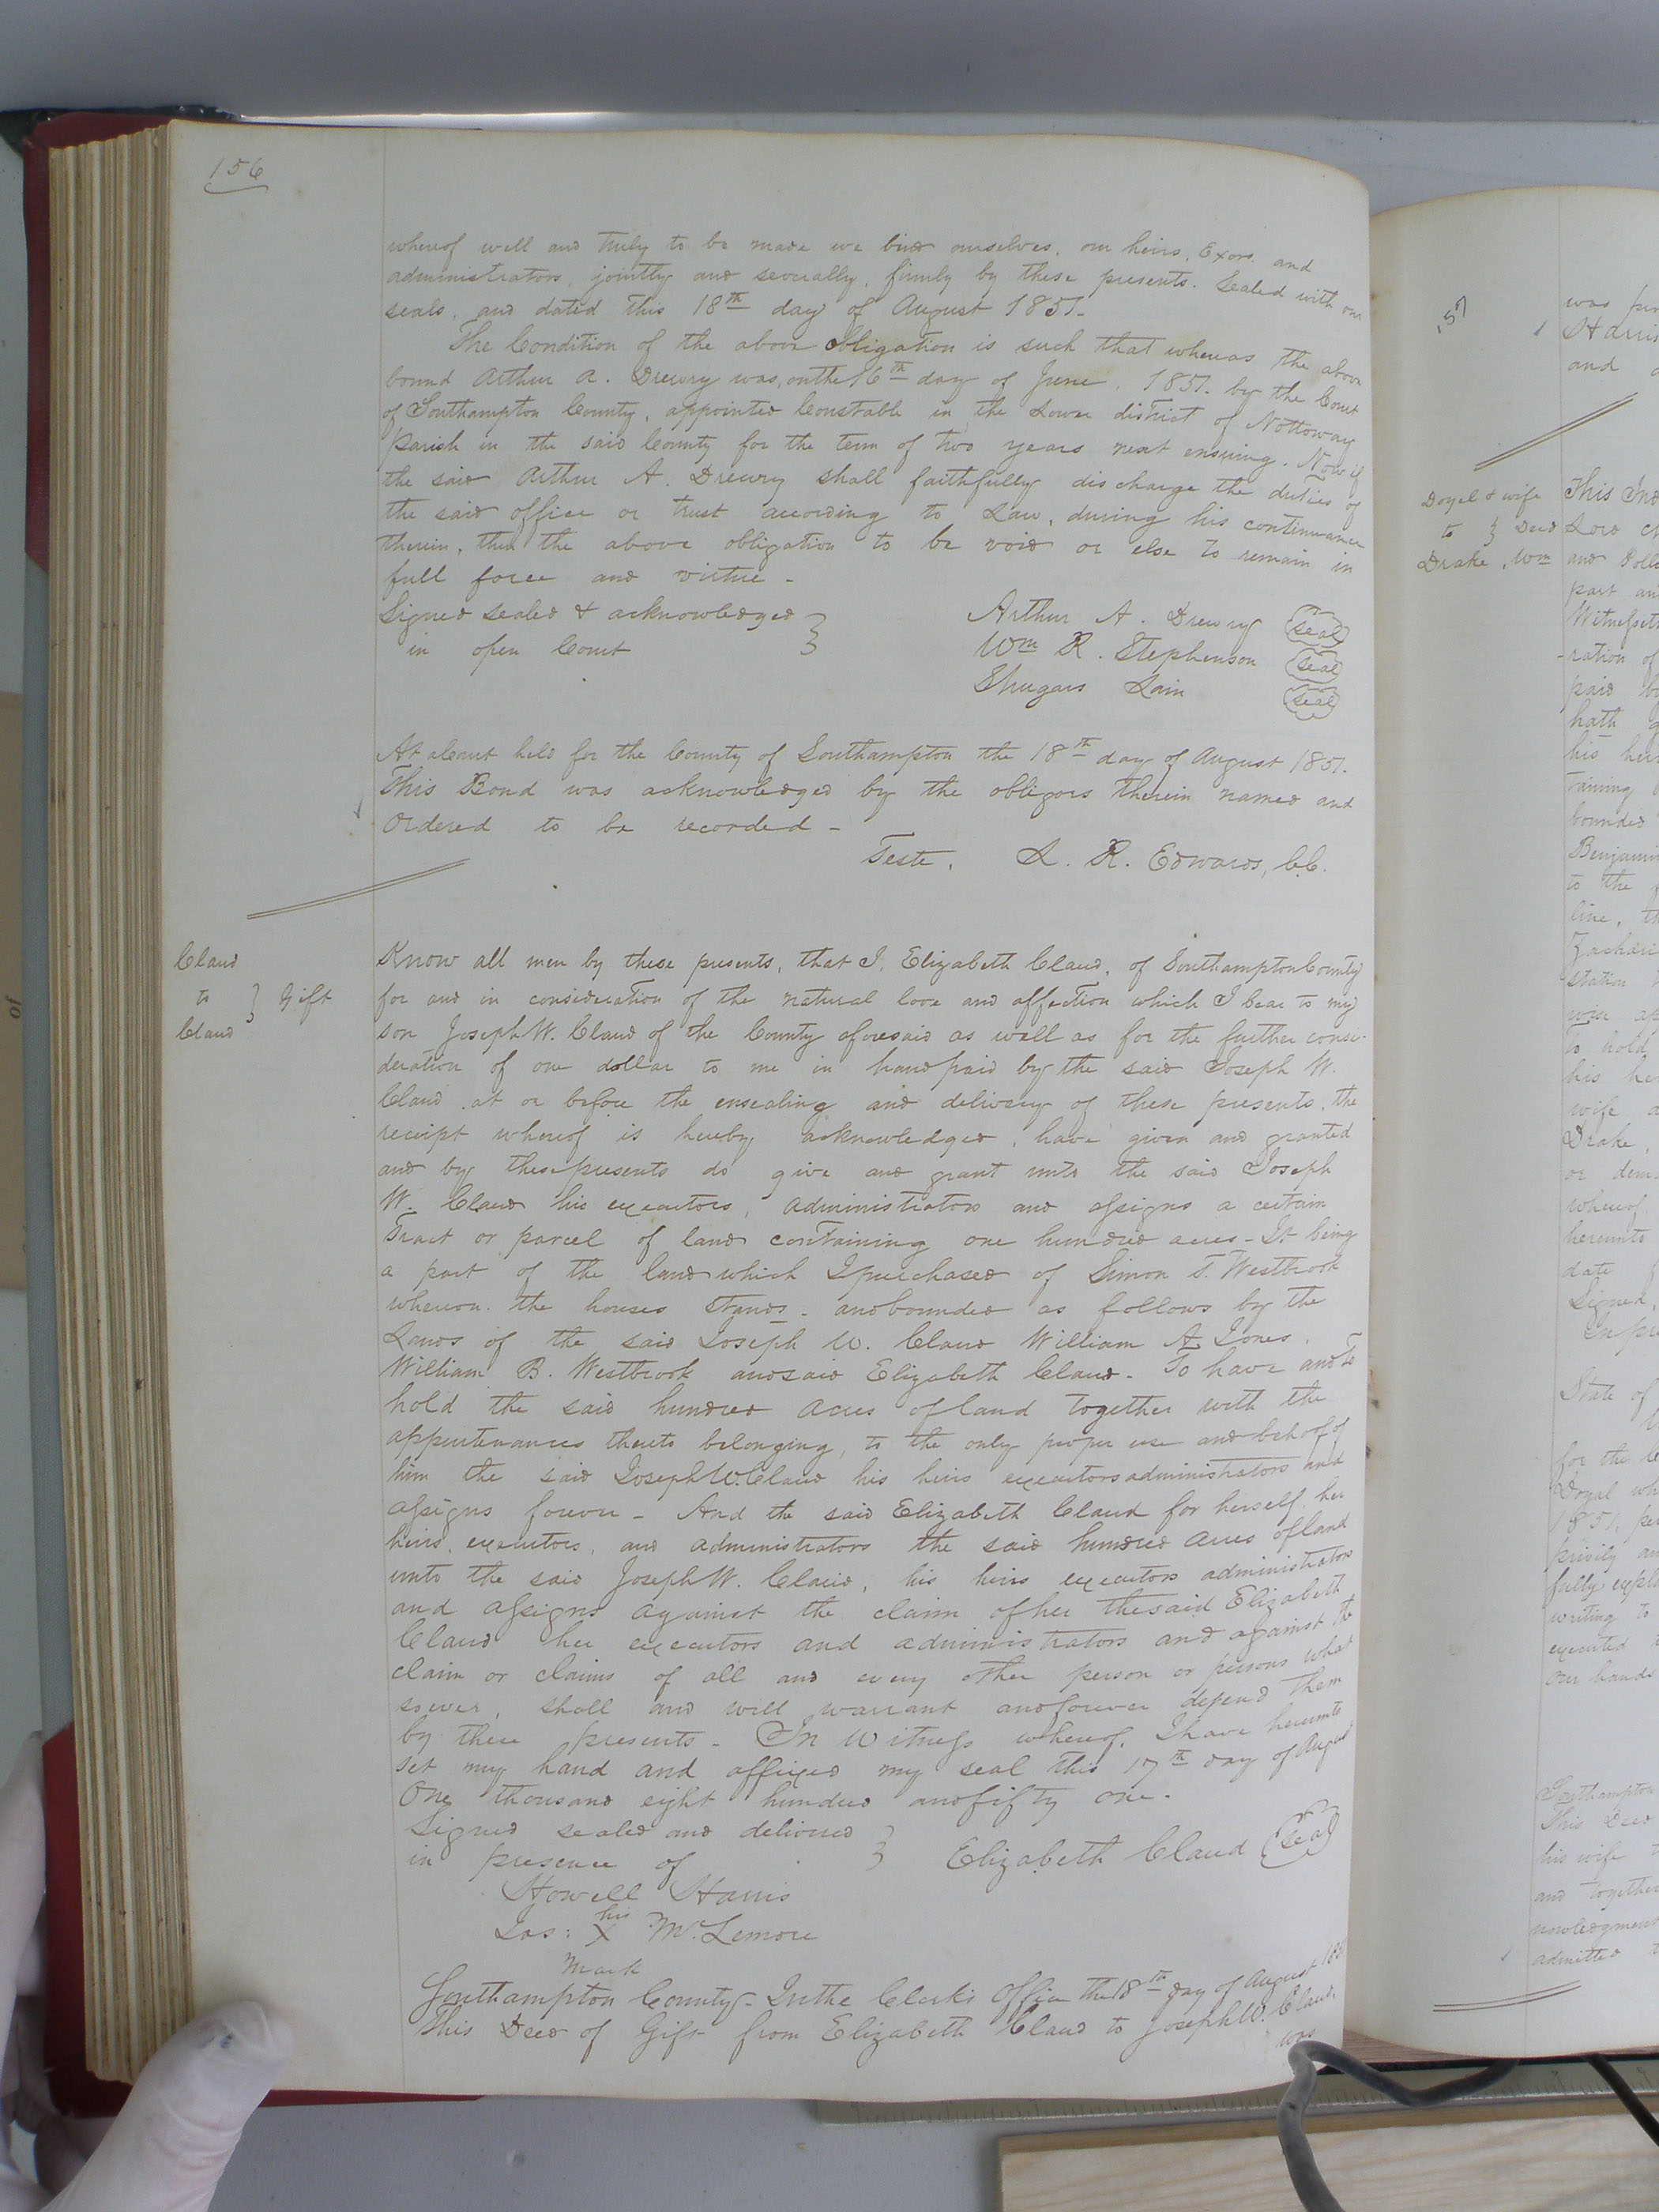 156
whereof well and truly to be made we bind ourselves, our heirs, Exors, and
administrators, jointly and severally, firmly by these presents. Sealed with our
seals, and dated this 18th day of August 1851.
The Condition of the above obligation is such that whereas the above
bound Arthur A. Drewry was, on the 16th day of June, 1851. by the Court
of Southampton County, appointed Constable in the Lower district of Nottoway
Parish in the said County for the term of two years next ensuing. Now if
the said Arthur A. Drewry shall faithfully discharge the duties of
the said office or trust according to Law, during his continuance
therein, then the above obligation to be void or else to remain in
full force and virtue -
Signed sealed & acknowledged
in open Court
Arthur A. Drewry seal
Wm R. Stephenson seal
Shugars Lain seal
At a Court held for the County of Southampton the 18th day of August 1851.
This Bond was acknowledged by the obligors therein named and
Ordered to be recorded -
Teste, L. R. Edwards, C.C.
Claud
to } Gift
Claud
Know all men by these presents, that I, Elizabeth Claud, of Southampton County
for and in consideration of the natural love and affection which I bear to my
son Joseph W. Claud of the County aforesaid as well as for the further consi-
deration of one dollar to me in hand paid by the said Joseph W.
Claud at or before the ensealing and delivery of these presents, the
receipt whereof is hereby acknowledged, have given and granted
and by these presents do give and grant unto the said Joseph
W. Claud his executors, administrators and assigns a certain
Tract or parcel of land containing one hundred acres - It being
a part of the land which I purchased of Simon T. Westbrook
whereon the houses stands - and bounded as follows by the
Lands of the said Joseph W. Claud William A Jones.
William B. Westbrook and said Elizabeth Claud - To have and to
hold the said hundred acres of land together with the
appurtenances thereto belonging, to the only proper use and behoof of
him the said Joseph W. Claud his heirs executors administrators and
assigns forever - And the said Elizabeth Claud for herself, her
heirs, executors, and administrators the said hundred acres of land
unto the said Joseph W. Claud, his heirs executors administrators
and assigns against the claim of her the said Elizabeth
Claud her executors and administrators and against the
claim or claims of all and every other person or persons what
soever, shall and will warrant and forever defend them
by these presents - In Witness whereof, I have hereunto
set my hand and affixed my seal this 17th day of August
One thousand eight hundred and fifty one.
Signed sealed and delivered
in presence of
Elizabeth Claud Seal
Howell Harris
Jas: his X mark McLemore
Southampton County - In the Clerk's Office the 18th day of August 185
This Deed of Gift from Elizabeth Claud to Joseph W. Claud,
was
157
was
Harris
and
Doyel & wife
to } Deed
Drake, Wm
This Ind
Lord
and
part an
Witnesseth
-ration of
paid
hath
his heirs
taining
bounded
Benjamin
to the
line, th
Zachari
station
To hold
his he
wife a
Drake,
or dem
whereof
hereunto
date
Signed,
State of
for the
Doyal wh
1851, pe
privily an
fully expla
writing to
executed
Our hands
Southampton
This Deed
his wife
and together
nowledgment
admitted